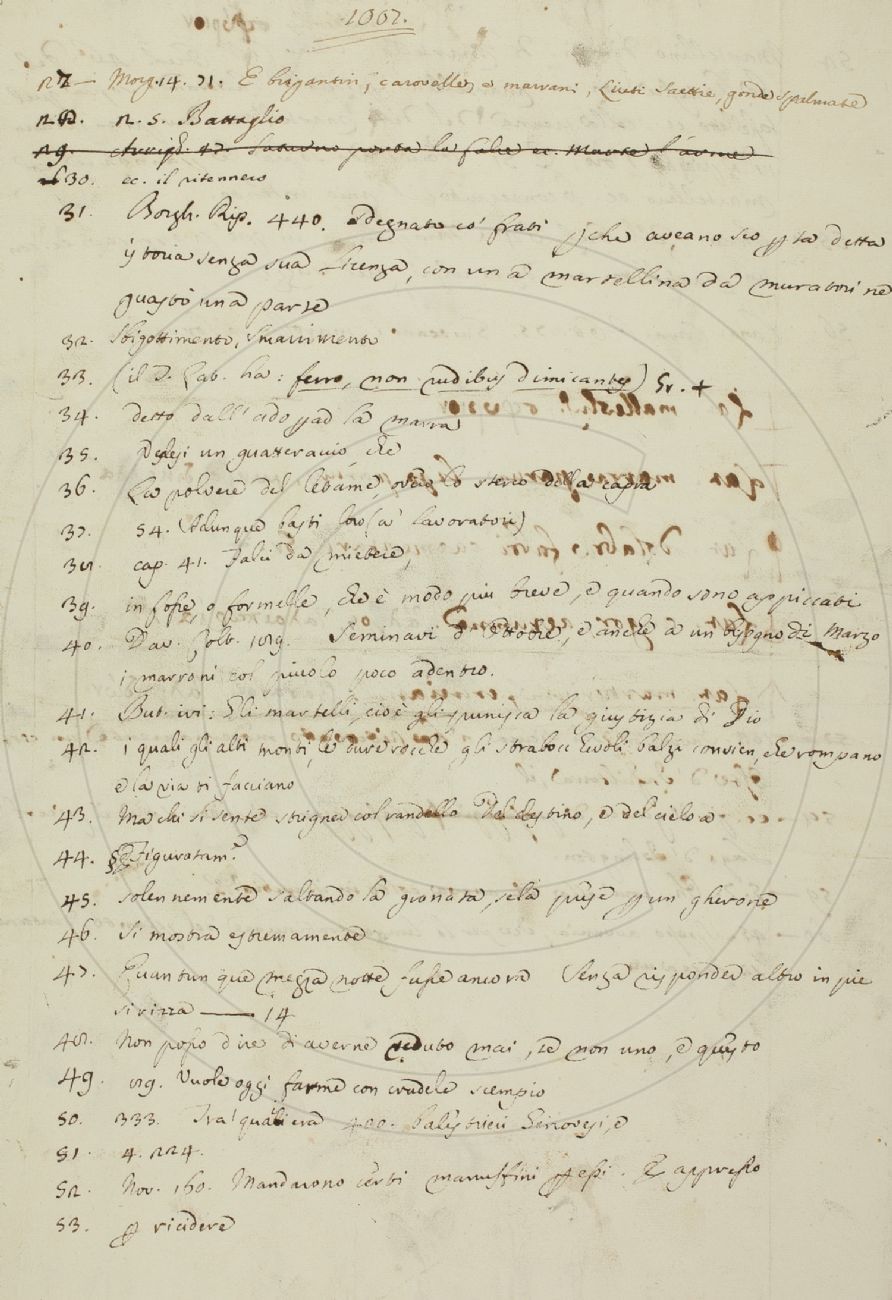 1007.
27 — Morg. 14. 71. E brigantini, e carovelle, e marrani, Liuti Saettie, gonde spalmate
28. 2. 5. Battaglio
porta la falce ec. Marte l'arme
30. ec. il ritennero
31. Borgh. Rip. 440. Sdegnato co' frati che aveano detta
storia senza sua licenza, con una martellina da muratori ne
guastò una parte
32. Sbigottimento, Smarrimento
33. (il T. Lab. ha: ferro, non rudibus dimicantes) Gr. +
34. detto dall' ad la marra
35. Delesi un guatteraccio, che
36. La polvere del letame, ovvero lo sterco della capra
37. 54. (Adunque basti loro (a' lavoratori)
38. cap. 41. Falci da mietere,
39. in fosse, o formelle, che è modo piu breve, e quando sono appiccati
40. Dav. Colt. 189. Seminavi d' Ottobre, e anche a un bisogno di Marzo
i marroni col piuolo poco adentro.
41. But. ivi: Gli martelli, cioè gli punisca la giustizia di Dio
42. i quali gli alti monti, le dure rocche gli strabocchevoli balzi convien, che rompano
e la via ti facciano
43. Ma chi si sente strigner col randello Del destino, e del cielo a
44. § Figuratam.e
45. solennemente saltando la granata, se la prese p un gherone
46. si mostra estremamente
47. Quantunque mezza notte fusse ancora Senza risponder altro in pie
si rizza —— 14
48. Non posso dire di averne veduto mai, se non uno, e questo
49. 29. Vuole oggi farme con crudele scempio
50. 333. Tra' quali era 400. balestrieri Genovesi, e
51. 4. 224.
52. Nov. 160. Mandarono certi p essi. E appresso
53. p ricidere